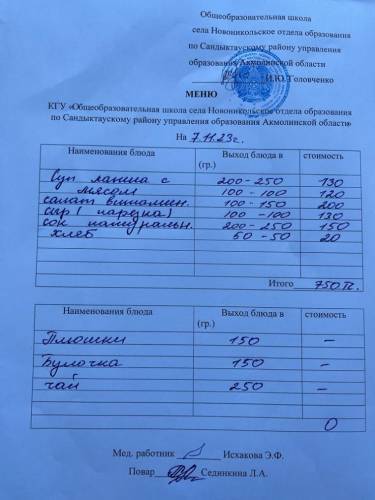 Общеобразовательная школа
села Новоникольское отдела образования
по Сандыктаускому району управления
образования Акмолинской области
И.Ю.Головченко
МЕНЮ
КГУ «Общеобразовательная школа села Новоникольское отдела образования
по Сандыктаускому району управления образования Акмолинской области»
На 7.11.23г.
Наименования блюда Выход блюда в (гр.) стоимость
Суп лапша с 200-250 130
мясом 100-100 120
салат витамин. 100-150 200
сыр (нарезка) 100-100 130
сок натуральн. 200-250 150
хлеб 50-50 20
Итого 750тг.
Наименования блюда Выход блюда в (гр.) стоимость
Плюшки 150 –
Булочка 150 –
чай 250 –
0
Мед. работник Исхакова Э.Ф.
Повар Сединкина Л.А.